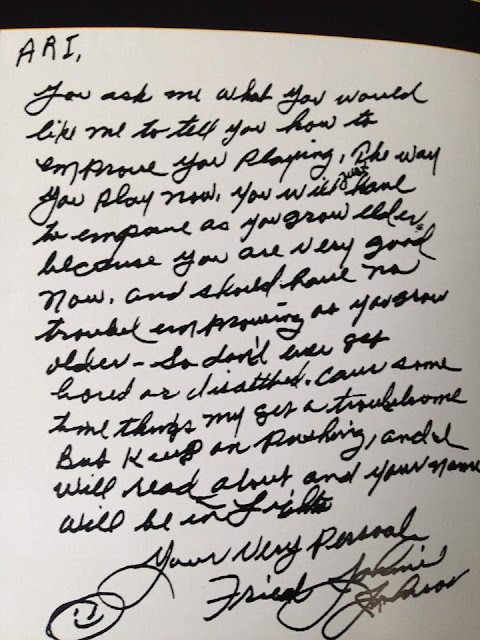 ARI,
You ask me what you would
like me to tell you how to
emprove your playing. The way
you play now, you will just have
to empove as you grow elder,
because you are very good
now. and should have no
troubel emprowing as you grow
older - So don't ever get
bored or disattked. caus some
time things my get a troublesome
But Keep on Pushing, and I
will read about and your name
will be in Lights
Your Very Personal
Fried Johnnie
Johnson